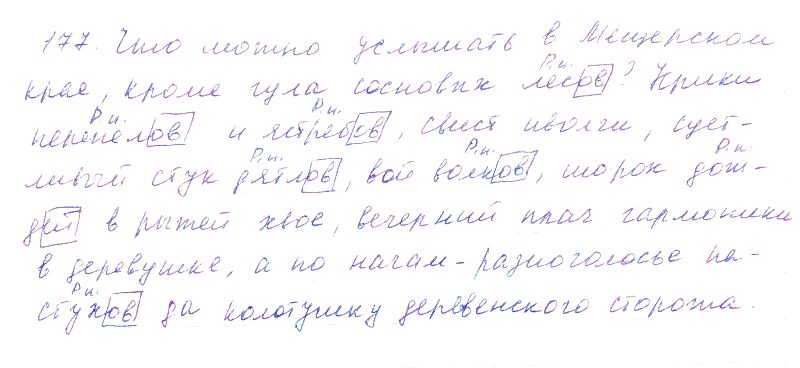 177. Что можно услышать в Мещерском
Р.п.
крае, кроме гула сосновых лесов? Крики
Р.п. Р.п.
перепелов и ястребов, свист иволги, сует-
Р.п. Р.п. Р.п
ливый стук дятлов, вой волков, шорох дож-
дей в рыжей хвое, вечерний плач гармоники
в деревушке, а по ночам - разноголосье пе-
Р.п.
стухов да колотушку деревенского сторожа.